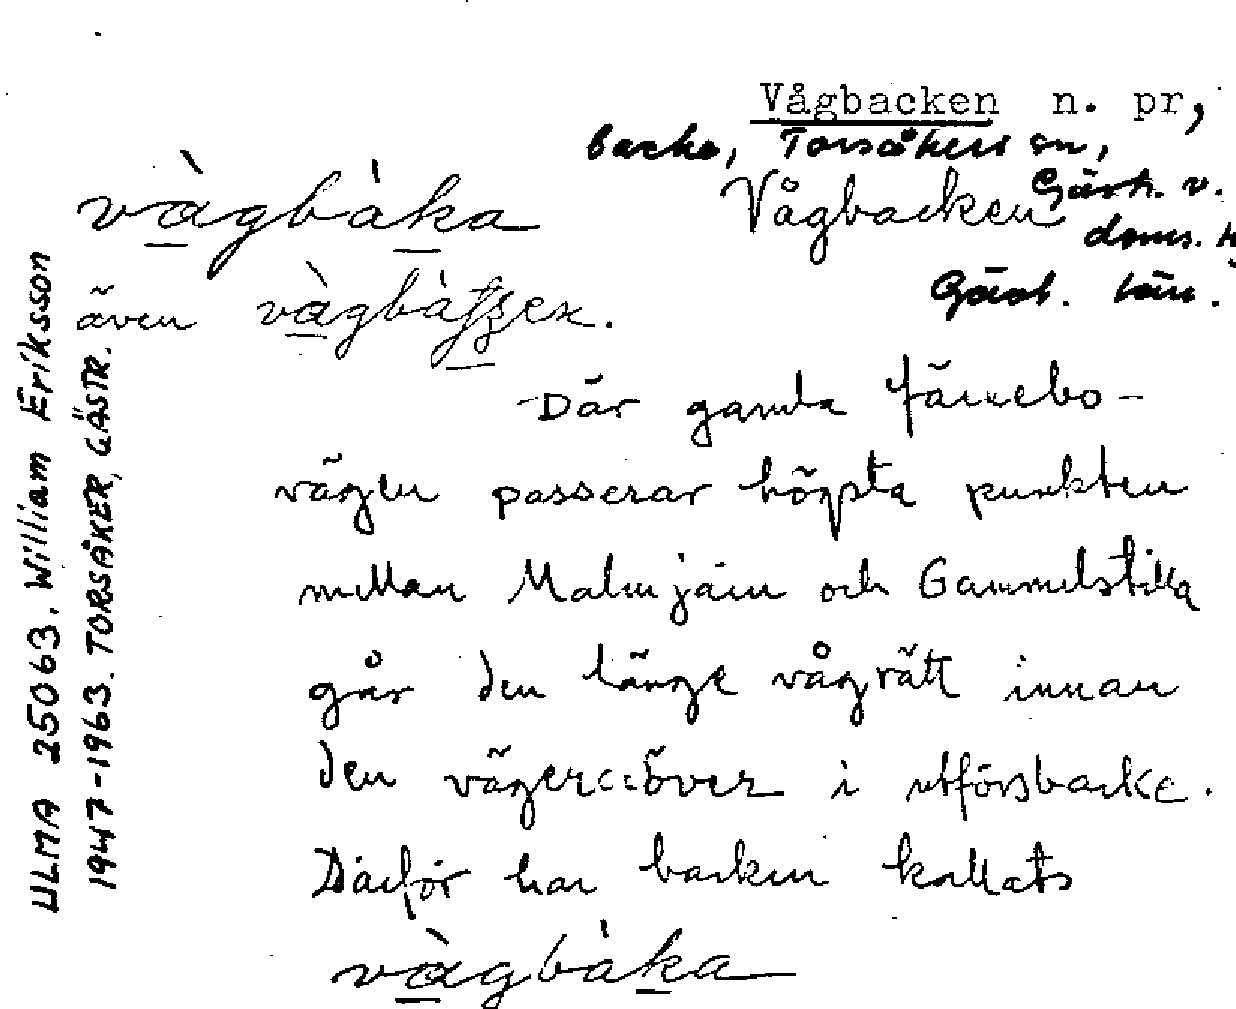 Vågbacken n. pr,
backe, Torsåkers sn,
Gästr. v.
doms. h
Gästr. län.
vàgbàka Vågbacken
även
Där gamla färnebo-
vägen passerar högsta punkten
mellan Malmjärn och Gammelstilla
går den länge vågrätt innan
den väger över i utförsbacke.
Därför har backen kallats
vàgbàka
ULMA 25063. William Eriksson
1947-1963. TORSÅKER, GÄSTR.